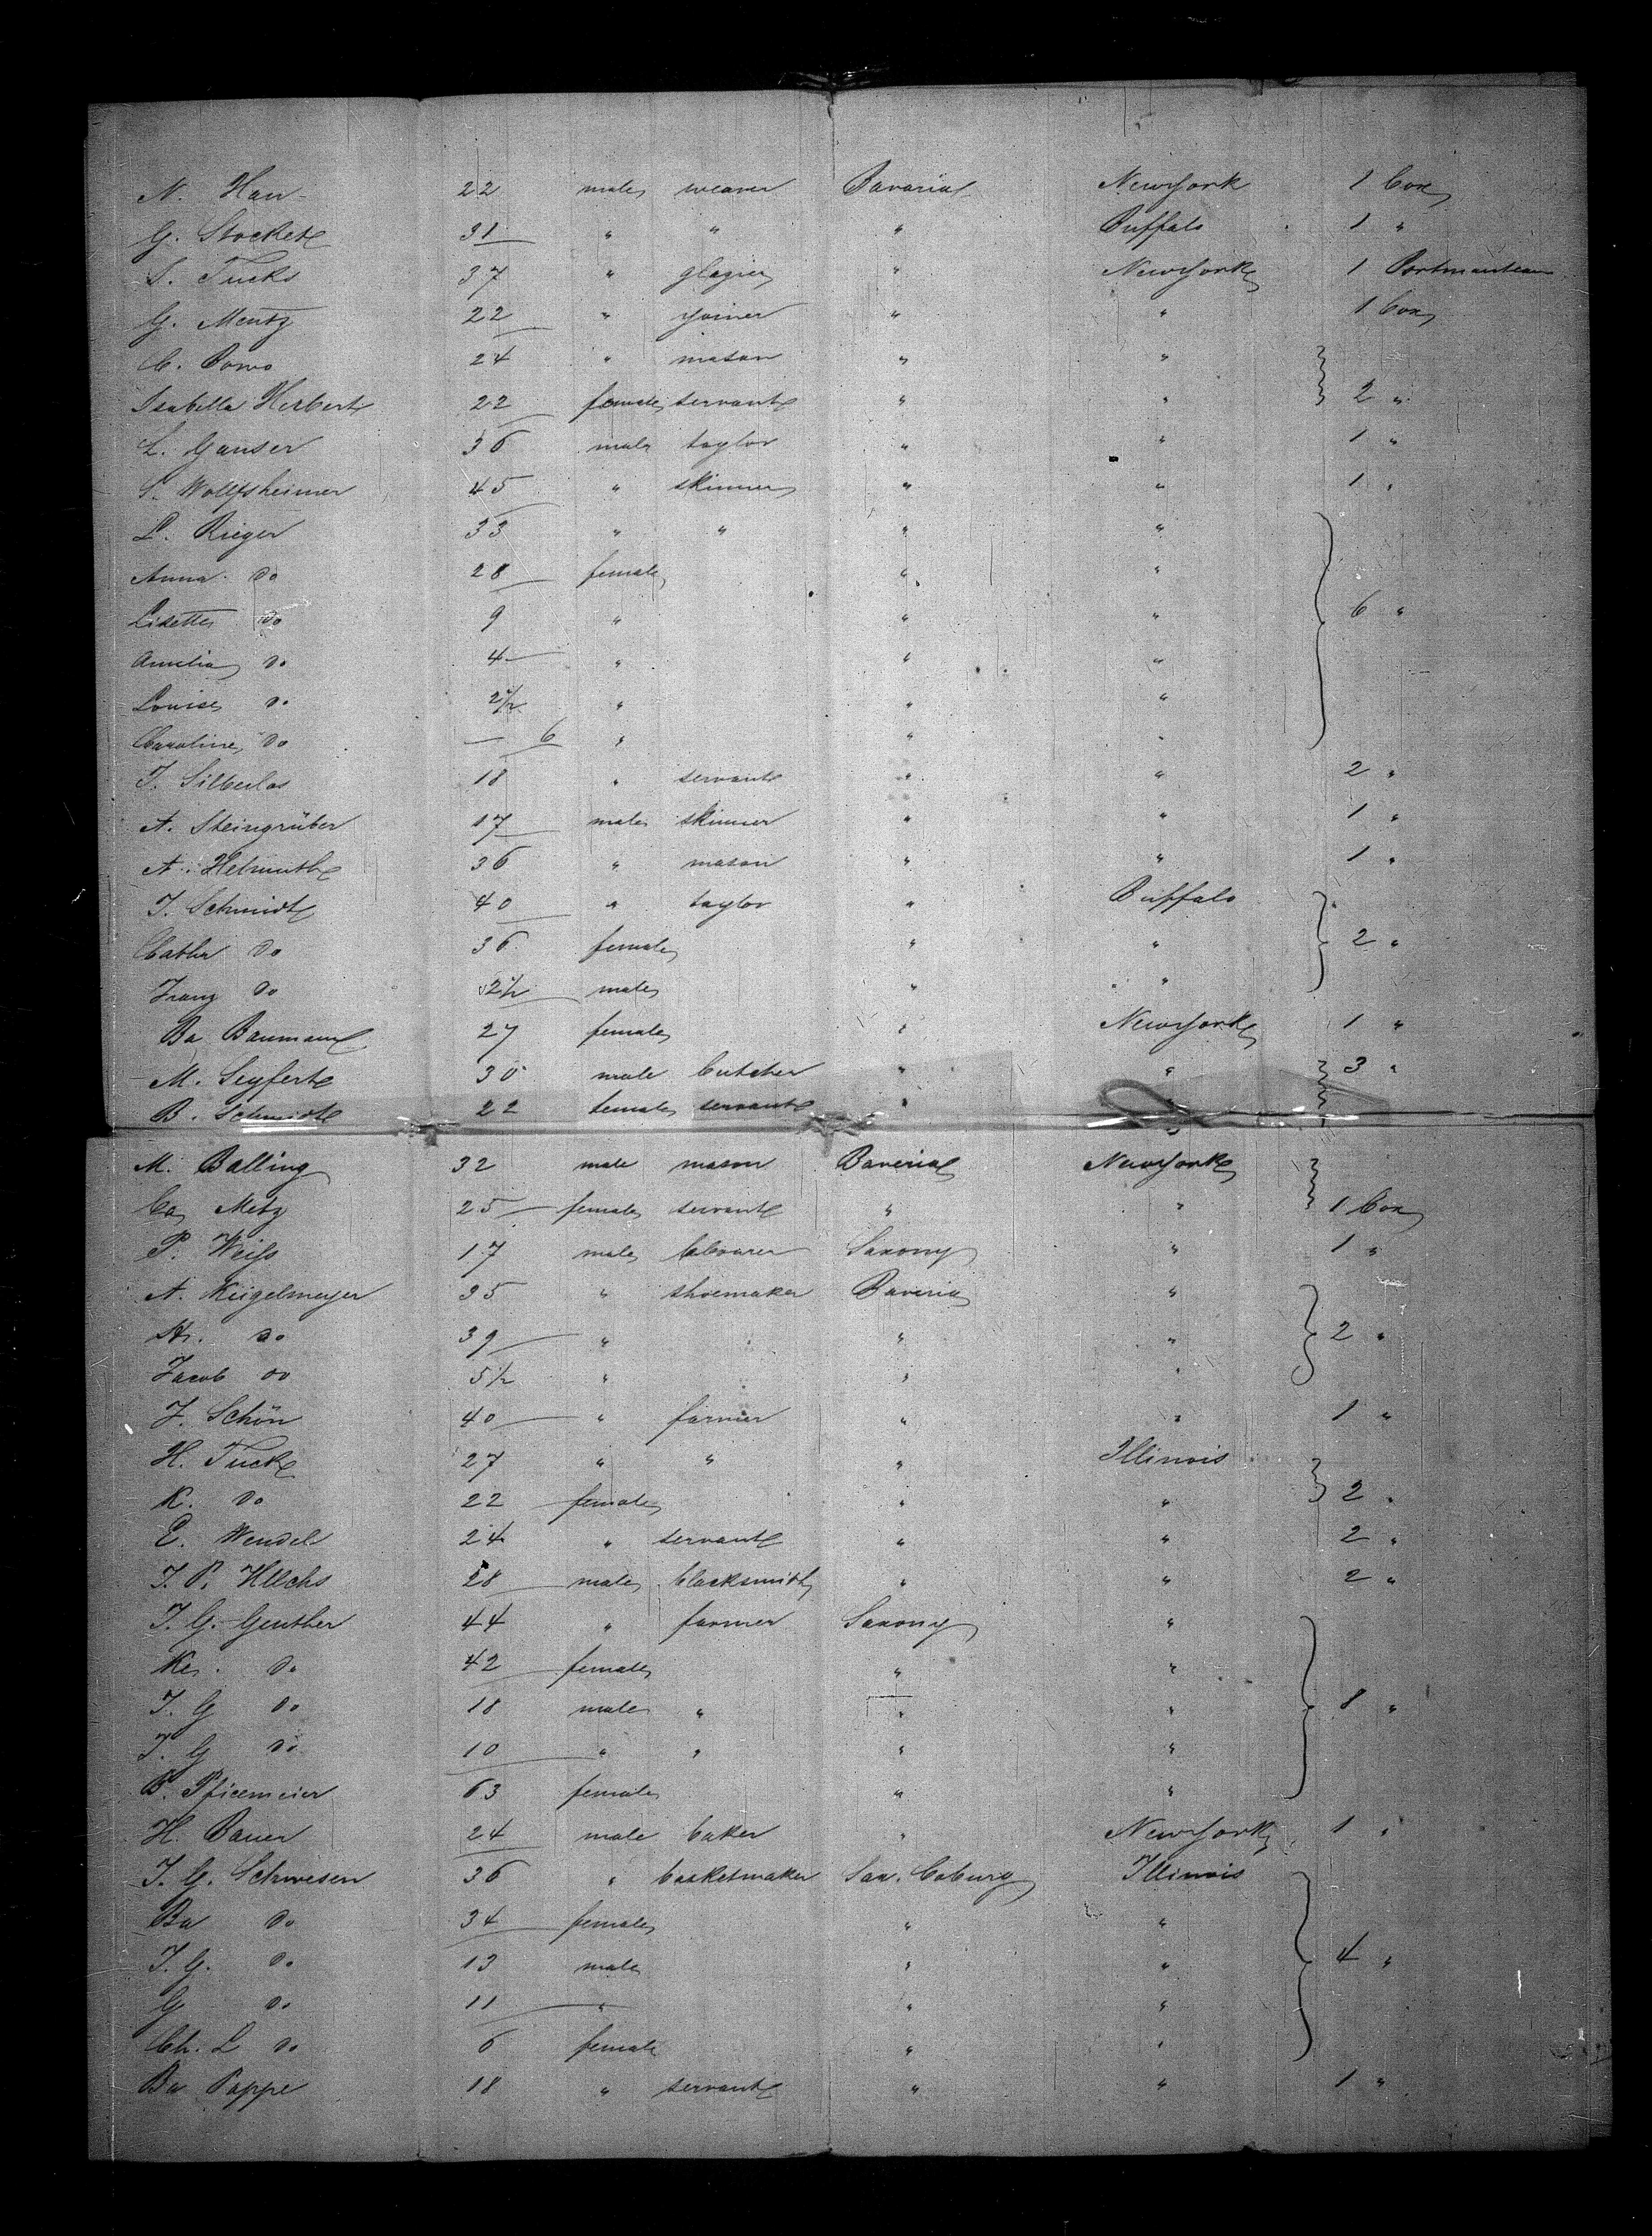 N. Hau 22 male weaver Bavaria New York 1 Box
G. Stockert 31 " " " Buffalo 1 "
S. Fucks 37 " glazier " New York 1 Portmanteau
G. Mentz 22 " joiner " " 1 Box
24 " mason " "
Isabella Herbert 22 female servant " " 2 "
L. Ganser 36 male taylor " " 1 "
S. Wolfsheimer 45 " skinner " " 1 "
L. Rieger 33 " " " "
Anna do 28 female " "
Lisette do 9 " " " 6 "
Amelia do 4 " " "
Louise do 2 1/2 " " "
Caroline do — 6 " " "
J. Silberlas 18 " servant " " 2 "
A. Steingrüber 17 male skinner " " 1 "
A. Helmuth 36 " mason " " 1 "
J. Schmidt 40 " taylor " Buffalo
Cathr do 36 female " " 2 "
Franz do 2 1/2 male " "
Ba Baumann 27 female " New York 1 "
M. Seyfert 30 male butcher " " 3 "
B. Schmidt 22 female servant " "
M. Balling 32 male mason Baveria New York
Ca Metz 25 female servant " " 1 Box
P. Weiss 17 male Saxony " 1 "
A. Kügelmeyer 35 " shoemaker Baveria "
do 39 " " " 2 "
Jacob do 5 1/2 " " "
J. Schön 40 " farmer " " 1 "
H. Fuck 27 " " " Illinois
K. do 22 female " " 2 "
E. Wendel 24 " servant " " 2 "
J. P. 28 male blacksmith " " 2 "
J. G. Genther 44 " farmer Saxony "
Ke. do 42 female " "
J. G do 18 male " " " 8 "
J. G do 10 " " " "
63 female " "
H. Bauer 24 male baker " New York 1 "
J. G. Schwesen 36 " basketmaker Sax. Coburg Illinois
Ba do 34 female " "
J. G. do 13 male " " 4 "
G do 11 " " "
Ch. L do 6 female " "
Ba Pappe 18 " servant " " 1 "